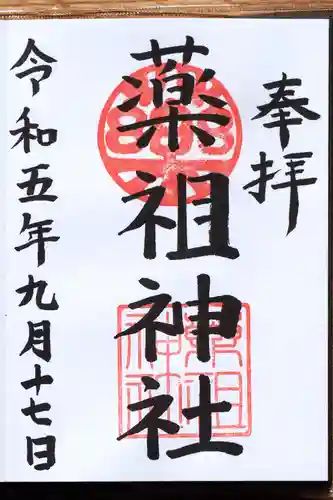 奉拝
薬祖神社
令和五年九月十七日
薬祖神社